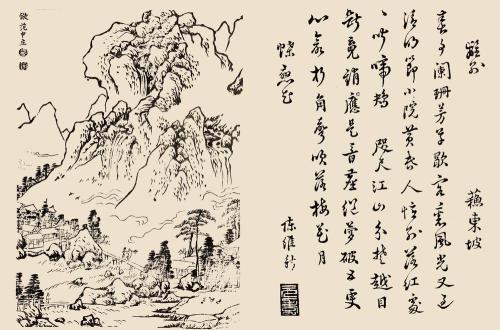 離別 蘇東坡
春事闌珊芳草歇客裏風光又過
清明節小院黃昏人憶別落紅處
々聞啼鴂 咫尺江山分楚越目
斷魂銷應是音塵絕夢破五更
心欲折角聲吹落梅花月
蝶戀花
倣范中立